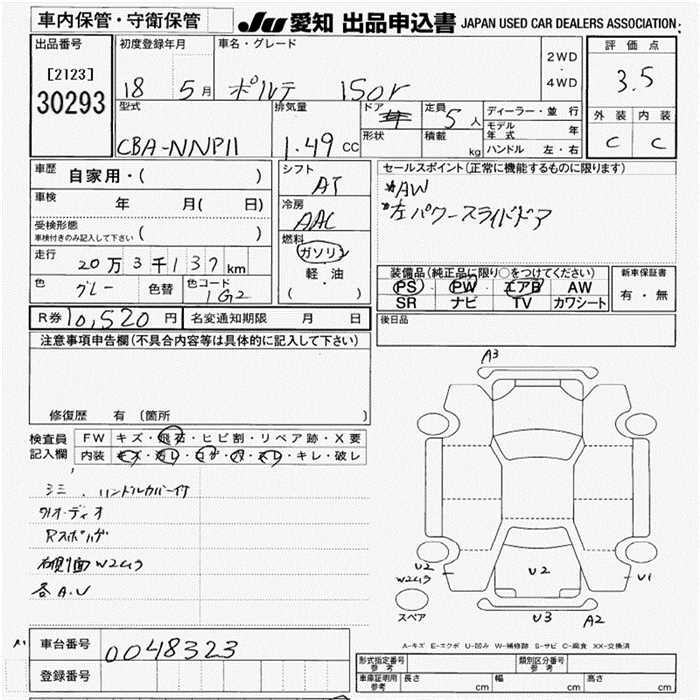 車内保管・守衛保管
JU 愛知 出品申込書 JAPAN USED CAR DEALERS ASSOCIATION
出品番号
[2123]
30293
初度登録年月
18 5月
車名・グレード
ポルテ 150r
2WD
・
4WD
評価点
3.5
外装 内装
C C
型式
CBA-NNP11
排気量
1.49 CC
ドア
形状
定員
5人
積載
kg
ディーラー・並行
モデル年式 年
ハンドル 左・右
車歴
自家用・( )
車検
年 月( 日)
受検形態
車検付きのみ記入して下さい ( )
走行
20万3千137km
色
グレー
色替
色コード
1G2
シフト
AT
冷房
AAC
燃料
ガソリン
軽・油
( )
セールスポイント(正常に機能するものに限ります)
*AW
*左パワースライドドア
装備品(純正品に限り○をつけてください)
PS・PW・エアB・AW
SR ナビ TV カワシート
新車保証書
有・無
後日品
R券 10,520円
名変通知期限 月 日
注意事項申告欄(不具合内容等は具体的に記入して下さい)
修復歴 有(箇所 )
検査員
記入欄
FW キズ・飛石・ヒビ割・リペア跡・X要
内装 キズ・汚レ・コゲ・穴・スレ・キレ・破レ
ミミ、ハンドルカバー付
オーディオ
右側面W2U3
各A.U
A3
U2
W2U3
U2
U1
U3
A2
スペア
A-キズ E-エクボ U-凹み W-補修跡 S-サビ C-腐食 XX-交換済
車台番号
0048323
登録番号
形式指定番号
参考
類別区分番号
参考
車庫証明用
参考
長さ cm 幅 cm 高さ cm